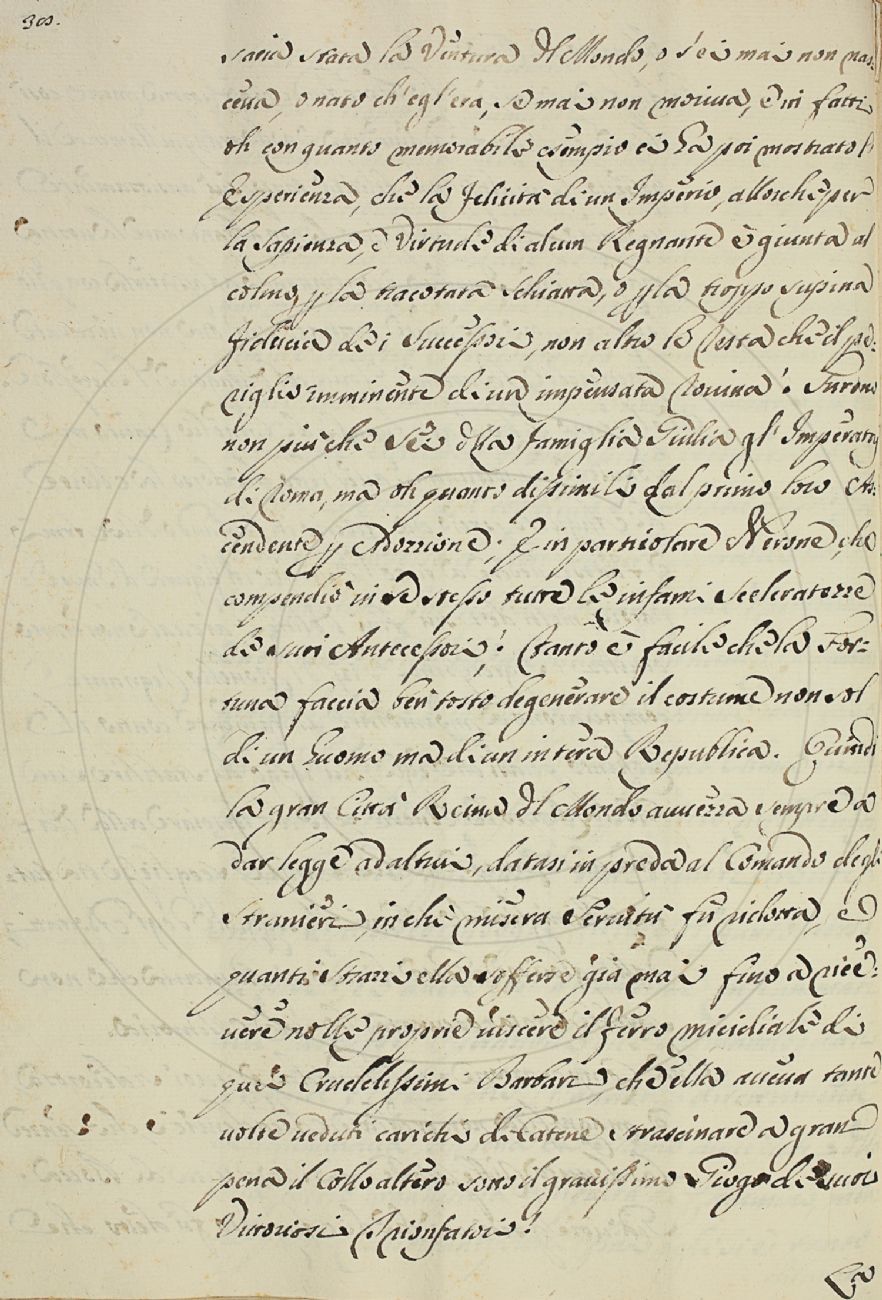 308.
saria stata la Ventura dl Mondo, o s'ei mai non nas-
ceva, o nato ch'egl'era, se mai non moriva, è in fatti
oh con quanto memorabile esempio ci hà poi mostrato l'
Esperienza, che la felicità di un Imperio, allorche per
la Sapienza, è Virtude di alcun Regnante è giunta al
colmo, p la tracotata Schiatta, o p la troppo supina
fiducia de i Successori, non altro le resta che il pe-
riglio imminente di una impensata rovina! Furono
non più che Sei dlla famiglia Giulia gl'Imperatori
di Roma, ma oh quanto dissimili dal primo loro As-
cendente p Adozzione; E in particolare Nerone, che
compendiò in se stesso tutte le infami Sceleratezze
de suoi Antecessori! Tanto è facile che la For-
tuna faccia ben tosto degenerare il costume non sol
di un huomo ma di un intera Republica. Quindi
la gran Città Reina dl Mondo avvezza sempre a
dar legge ad altrui, datasi in preda al Comando degli
Stranieri, in che misera Servitù fù ridotta, ed
quanti Strazi ella sofferse già mai fino a rice-
vere nelle proprie viscere il ferro micidiale di
quei Crudelissimi Barbari, che ella aveva tante
volte veduti carichi di Catene strascinare a gran
pena il Collo altero sotto il gravissimo Giogo de suoi
Vittoriosi Trionfatori!
La